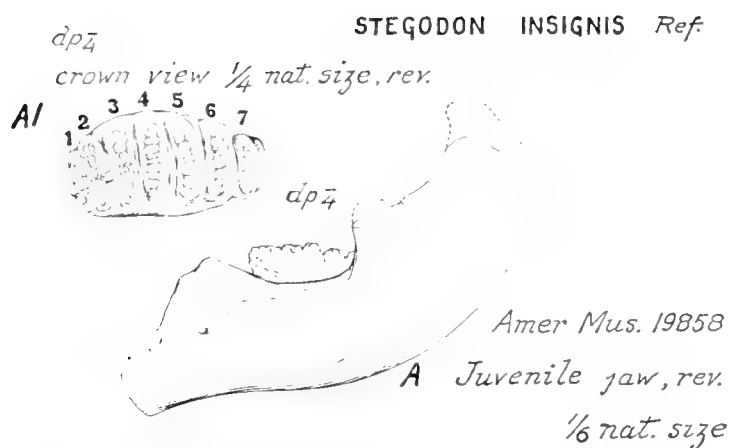 STEGODON INSIGNIS Ref.
dp4̄
crown view 1/4 nat. size, rev.
A1
1 2 3 4 5 6 7
dp4̄
Amer Mus. 19858
A Juvenile jaw, rev.
1/6 nat. size